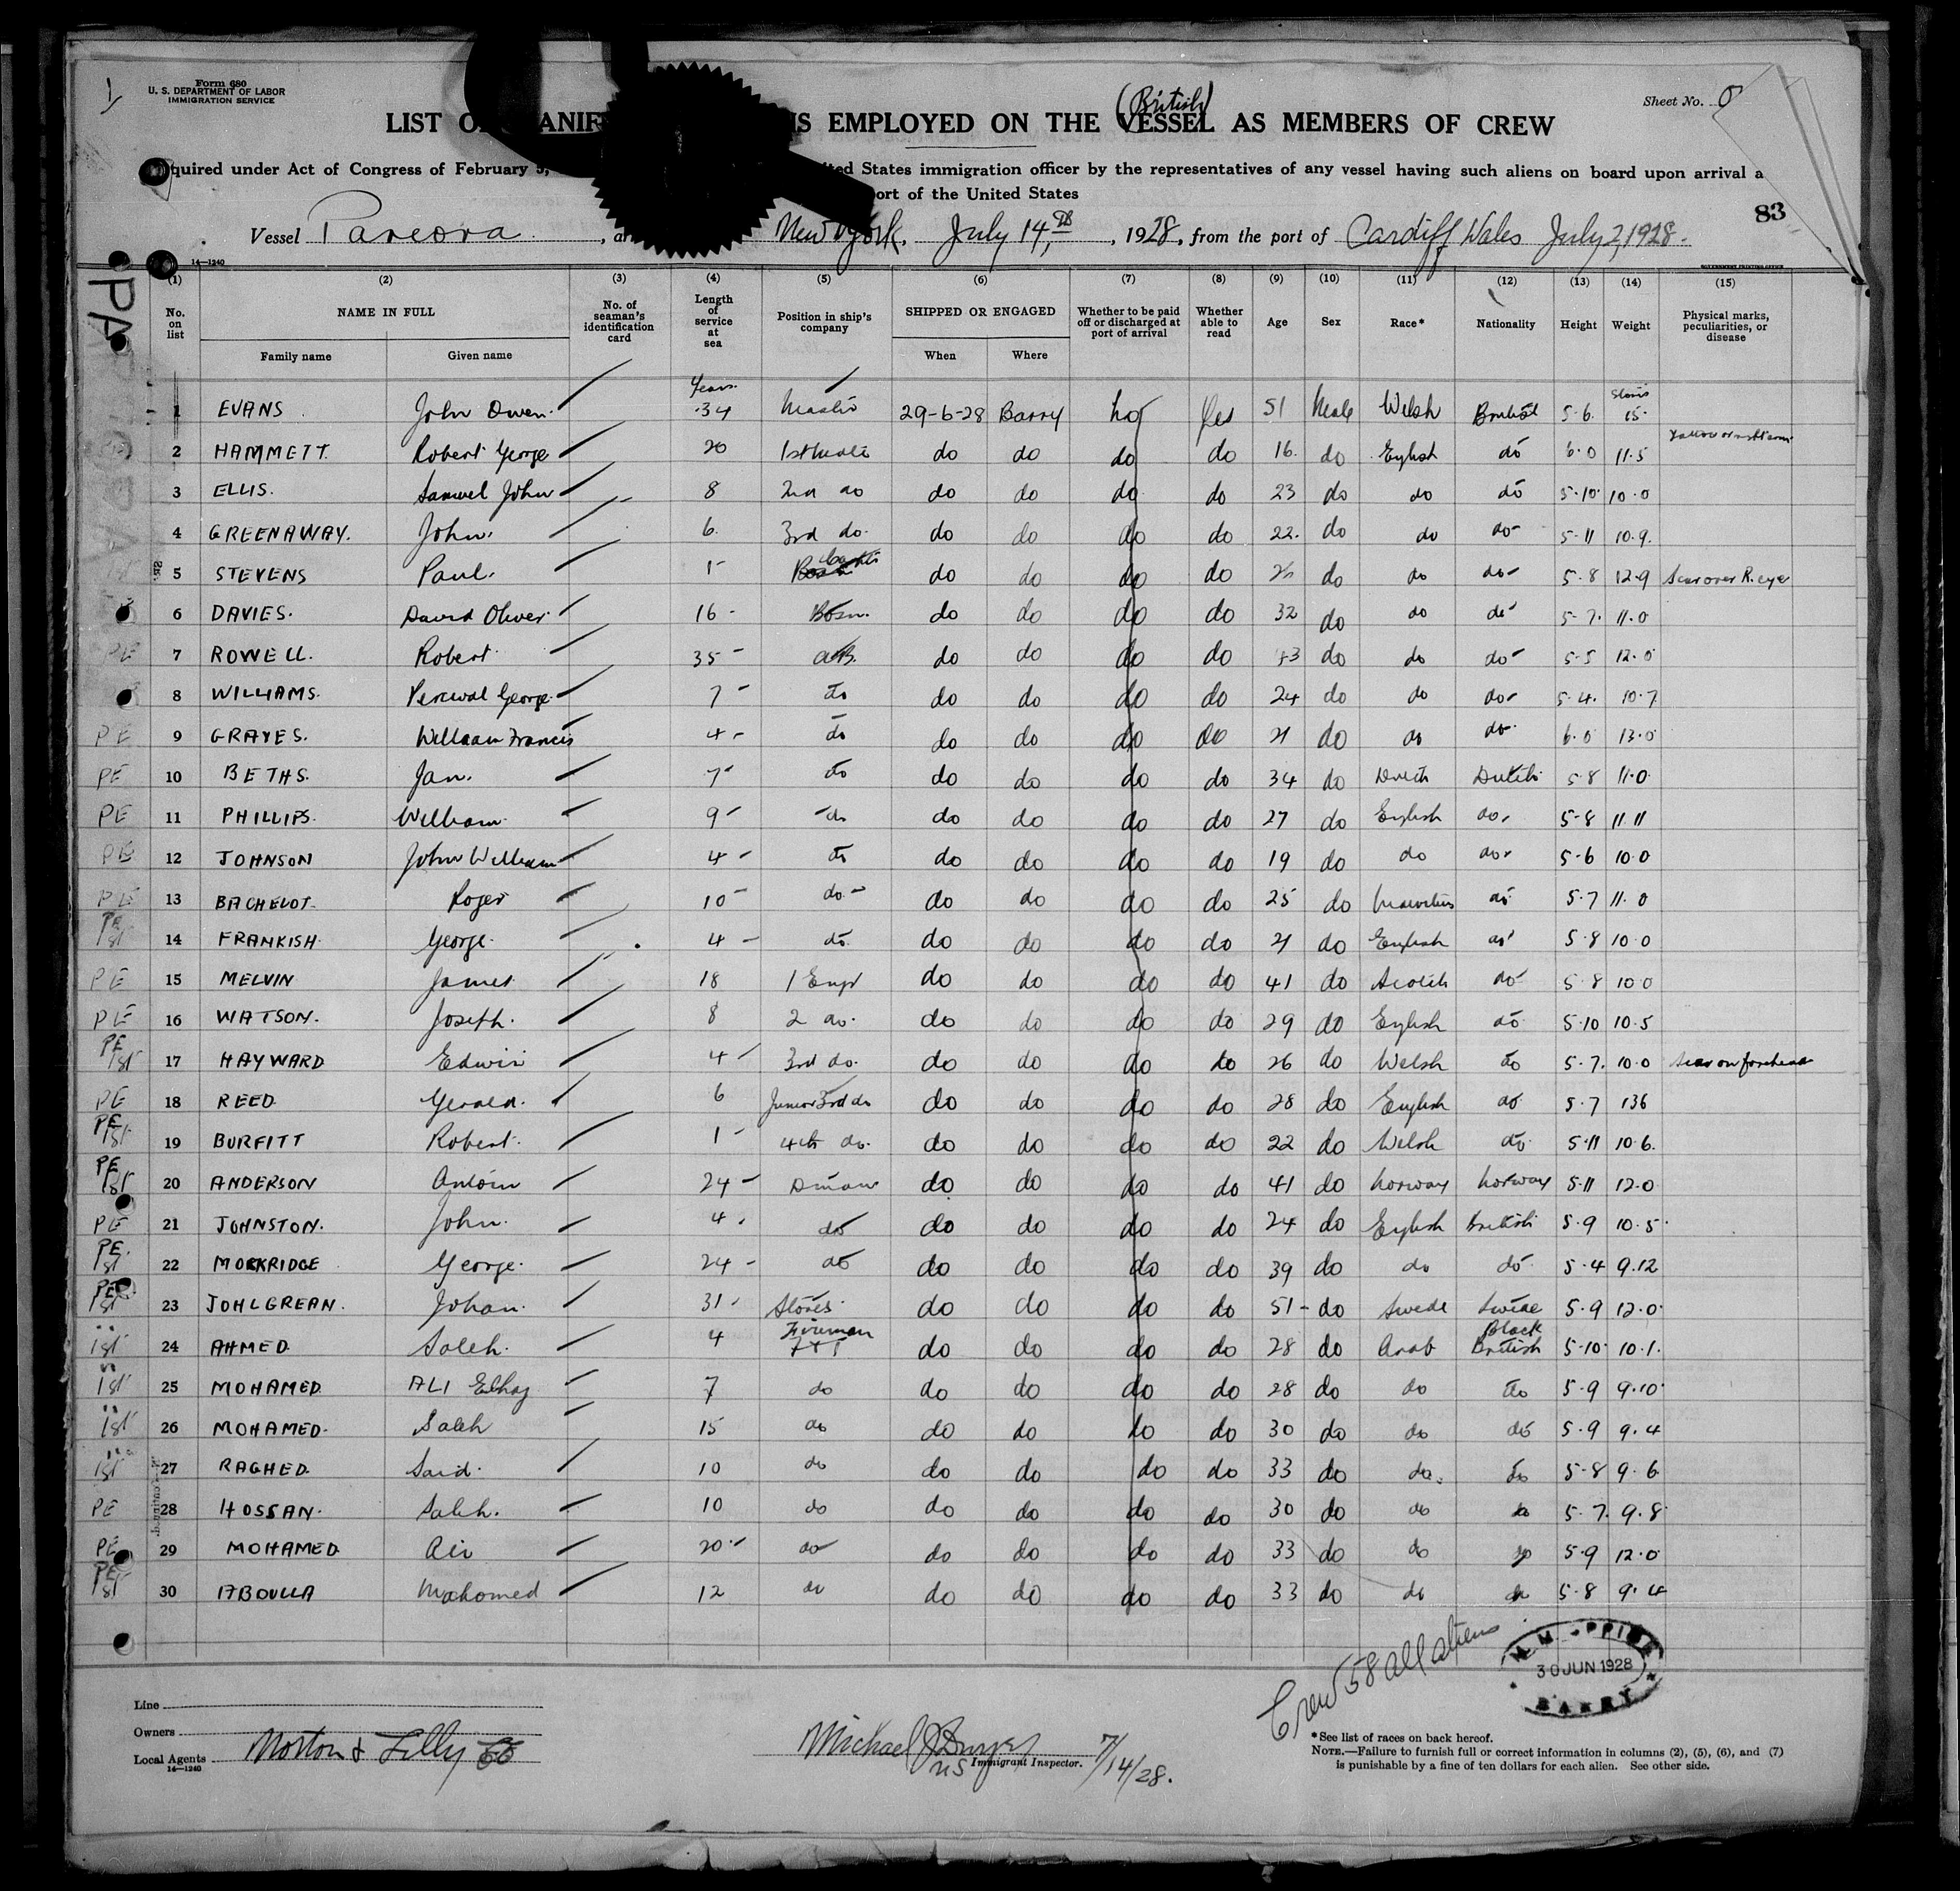 1
Form 680
U. S. DEPARTMENT OF LABOR
IMMIGRATION SERVICE
Sheet No.
(British)
LIST O ANIF S EMPLOYED ON THE VESSEL AS MEMBERS OF CREW
quired under Act of Congress of February 5, ted States immigration officer by the representatives of any vessel having such aliens on board upon arrival a
ort of the United States
83
Vessel Pareora, ar New York, July 14th, 1928, from the port of Cardiff Wales July 2, 1928.
14—1240
GOVERNMENT PRINTING OFFICE
(1) (2) (3) (4) (5) (6) (7) (8) (9) (10) (11) (12) (13) (14) (15)
No. on list NAME IN FULL No. of seaman's identification card Length of service at sea Position in ship's company SHIPPED OR ENGAGED Whether to be paid off or discharged at port of arrival Whether able to read Age Sex Race* Nationality Height Weight Physical marks, peculiarities, or disease
Family name Given name When Where
Years
1 EVANS John Owen 34 Master 29-6-28 Barry No Yes 51 Male Welsh British 5-6 15
2 HAMMETT Robert George 20 1st Mate do do do do 16 do English do 6-0 11.5
3 ELLIS. Samuel John 8 2nd do do do do do 23 do do do 5-10 10-0
4 GREENAWAY. John 6 3rd do do do do do 22 do do do 5-11 10.9
5 STEVENS Paul 1 do do do do do do do 5-8 12-9 Scar over R. eye
6 DAVIES. David Oliver 16 Bosn do do do do 32 do do do 5-7 11.0
7 ROWELL. Robert 35 AB do do do do 43 do do do 5-5 12.0
8 WILLIAMS. Percival George 7 do do do do do 24 do do do 5-4 10.7
9 GRAVES. William Francis 4 do do do do do 21 do do do 6-0 13.0
10 BETHS. Jan. 7 do do do do do 34 do Dutch Dutch 5-8 11.0
11 PHILLIPS. William 9 do do do do do 27 do English do 5-8 11.11
12 JOHNSON John William 4 do do do do do 19 do do do 5-6 10.0
13 BACHELOT Roger 10 do do do do do 25 do Mauritius do 5.7 11.0
14 FRANKISH George 4 do do do do do 21 do English do 5.8 10.0
15 MELVIN James 18 1 Engr do do do do 41 do Scotch do 5-8 10.0
16 WATSON. Joseph 8 2 do do do do do 29 do English do 5.10 10.5
17 HAYWARD Edwin 4 3rd do do do do do 26 do Welsh do 5-7 10.0 Scar on forehead
18 REED Gerald 6 Junior 3rd do do do do do 28 do English do 5.7 136
19 BURFITT Robert 1 4th do do do do do 22 do Welsh do 5.11 10.6
20 ANDERSON Antoin 24 Dman do do do do 41 do Norway Norway 5.11 12.0
21 JOHNSTON. John 4 do do do do do 24 do English British 5.9 10.5
22 MOCKRIDGE George 24 do do do do do 39 do do do 5.4 9.12
23 JOHLGREAN. Johan 31 Stores do do do do 51 do Swede Swede 5.9 12.0
Fireman Black
24 AHMED Saleh 4 F+T do do do do 28 do Arab British 5-10 10.1
25 MOHAMED ALI Elhaj 7 do do do do do 28 do do do 5.9 9.10
26 MOHAMED Saleh 15 do do do do do 30 do do do 5.9 9.4
27 RAGHED Said 10 do do do do do 33 do do do 5-8 9.6
28 HOSSAN Saleh 10 do do do do do 30 do do do 5.7 9.8
29 MOHAMED Ali 20 do do do do do 33 do do do 5.9 12.0
30 ABDULLA Mohomed 12 do do do do do 33 do do do 5-8 9.4
Crew 58 all aliens
30 JUN 1928
BARRY
Line
Owners
Local Agents Norton & Lilly Co
14—1240
Michael J
Immigrant Inspector.
7/14/28.
*See list of races on back hereof.
NOTE.—Failure to furnish full or correct information in columns (2), (5), (6), and (7)
is punishable by a fine of ten dollars for each alien. See other side.